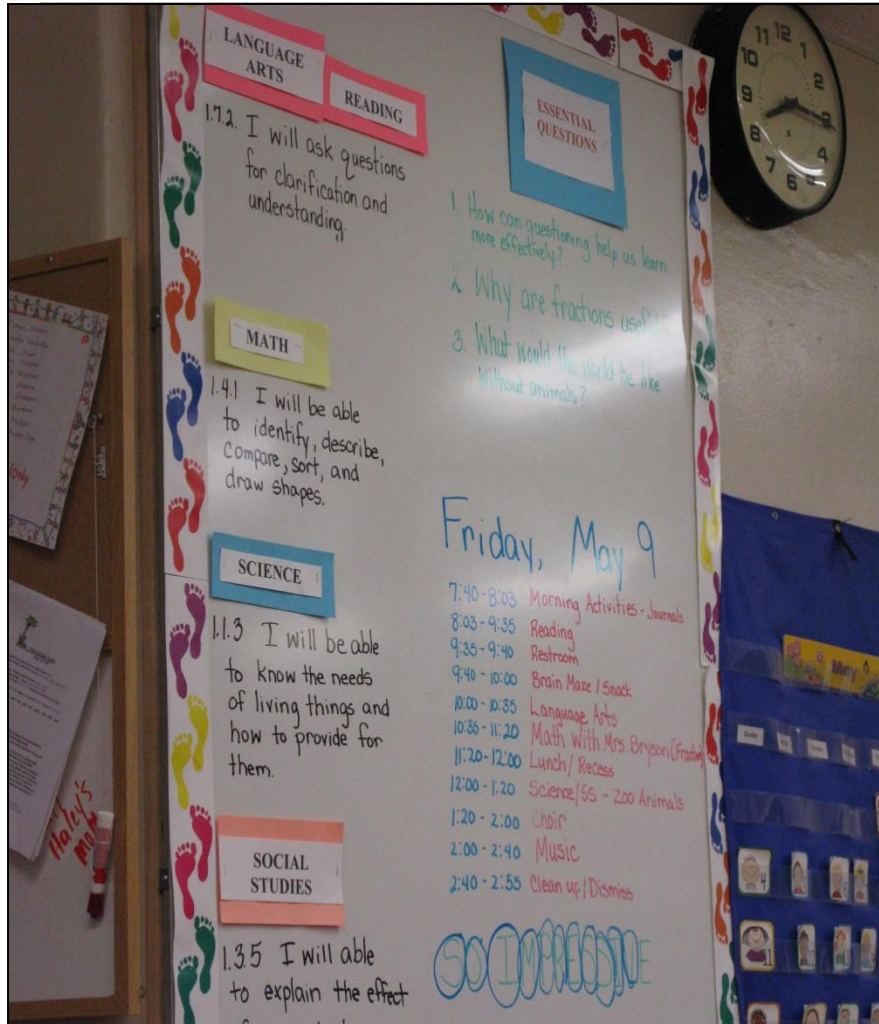 LANGUAGE
ARTS
READING
1.7.2. I will ask questions
for clarification and
understanding.
MATH
1.4.1 I will be able
to identify, describe,
compare, sort, and
draw shapes.
SCIENCE
1.1.3 I will be able
to know the needs
of living things and
how to provide for
them.
SOCIAL
STUDIES
1.3.5 I will able
to explain the effect
ESSENTIAL
QUESTIONS
1. How can questioning help us learn
more effectively?
2. Why are fractions useful?
3. What would the world be like
without animals?
Friday, May 9
7:40-8:03 Morning Activities - Journals
8:03 - 9:35 Reading
9:35 - 9:40 Restroom
9:40 - 10:00 Brain Maze / Snack
10:00 - 10:35 Language Arts
10:35 - 11:20 Math with Mrs. Bryson (Fractions)
11:20 - 12:00 Lunch / Recess
12:00 - 1:20 Science/SS - Zoo Animals
1:20 - 2:00 Choir
2:00 - 2:40 Music
2:40 - 2:55 Clean up / Dismiss
SO IMPRESSIVE
11 12 1 2 3 4 5 6 7 8 9 10
May
4
11
Haley's
mom
only